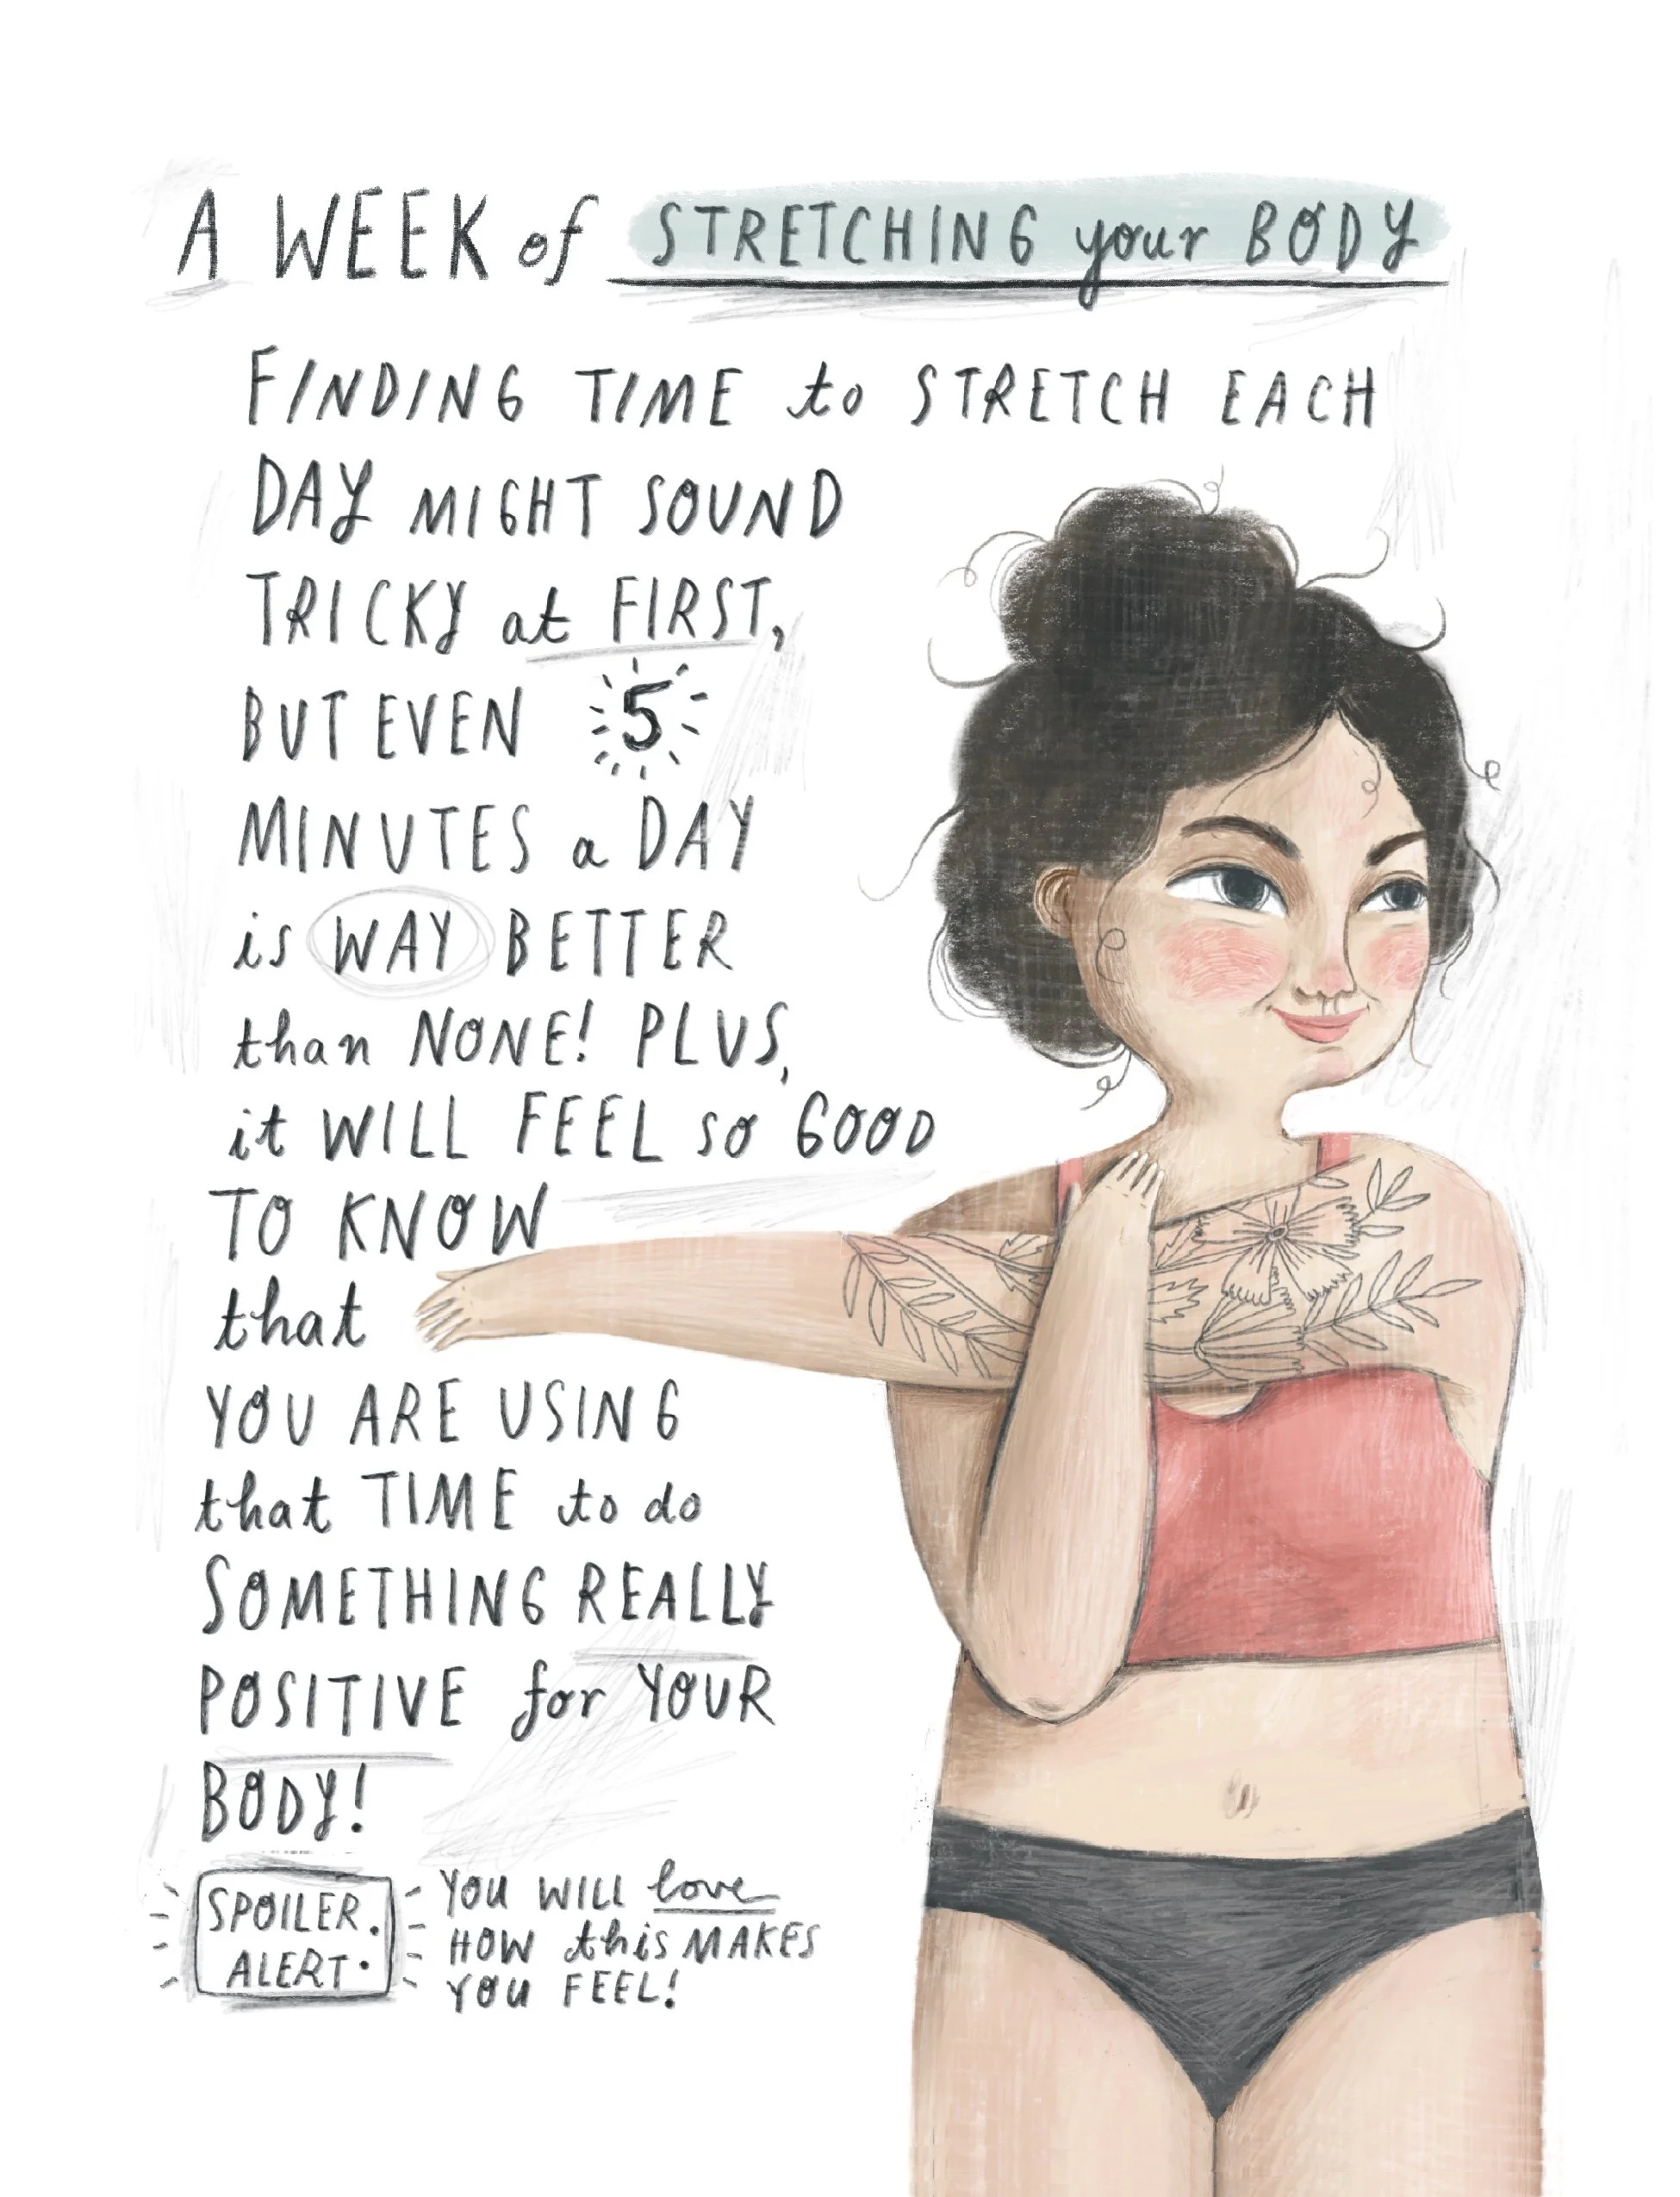 A WEEK of STRETCHING your BODY
FINDING TIME to STRETCH EACH
DAY MIGHT SOUND
TRICKY at FIRST,
BUT EVEN 5
MINUTES a DAY
is WAY BETTER
than NONE! PLUS,
it WILL FEEL so GOOD
TO KNOW
that
YOU ARE USING
that TIME to do
SOMETHING REALLY
POSITIVE for YOUR
BODY!
SPOILER.
ALERT.
YOU WILL love
HOW this MAKES
YOU FEEL!